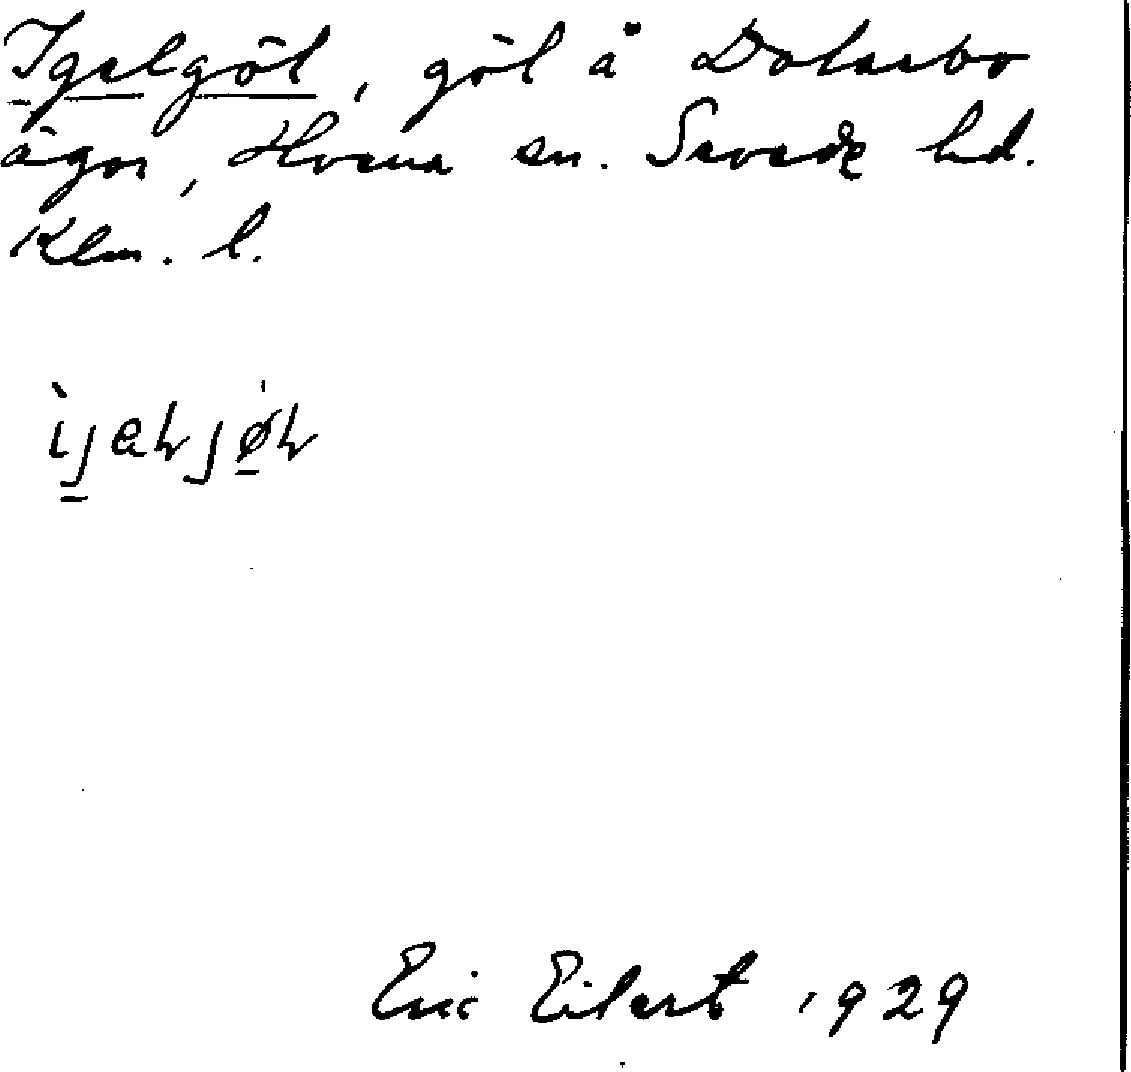 Igelgöl, göl å Dolsebo
ägor, Hvena sn. Sevede hd.
Klm. l.
Eric Eilert 1929